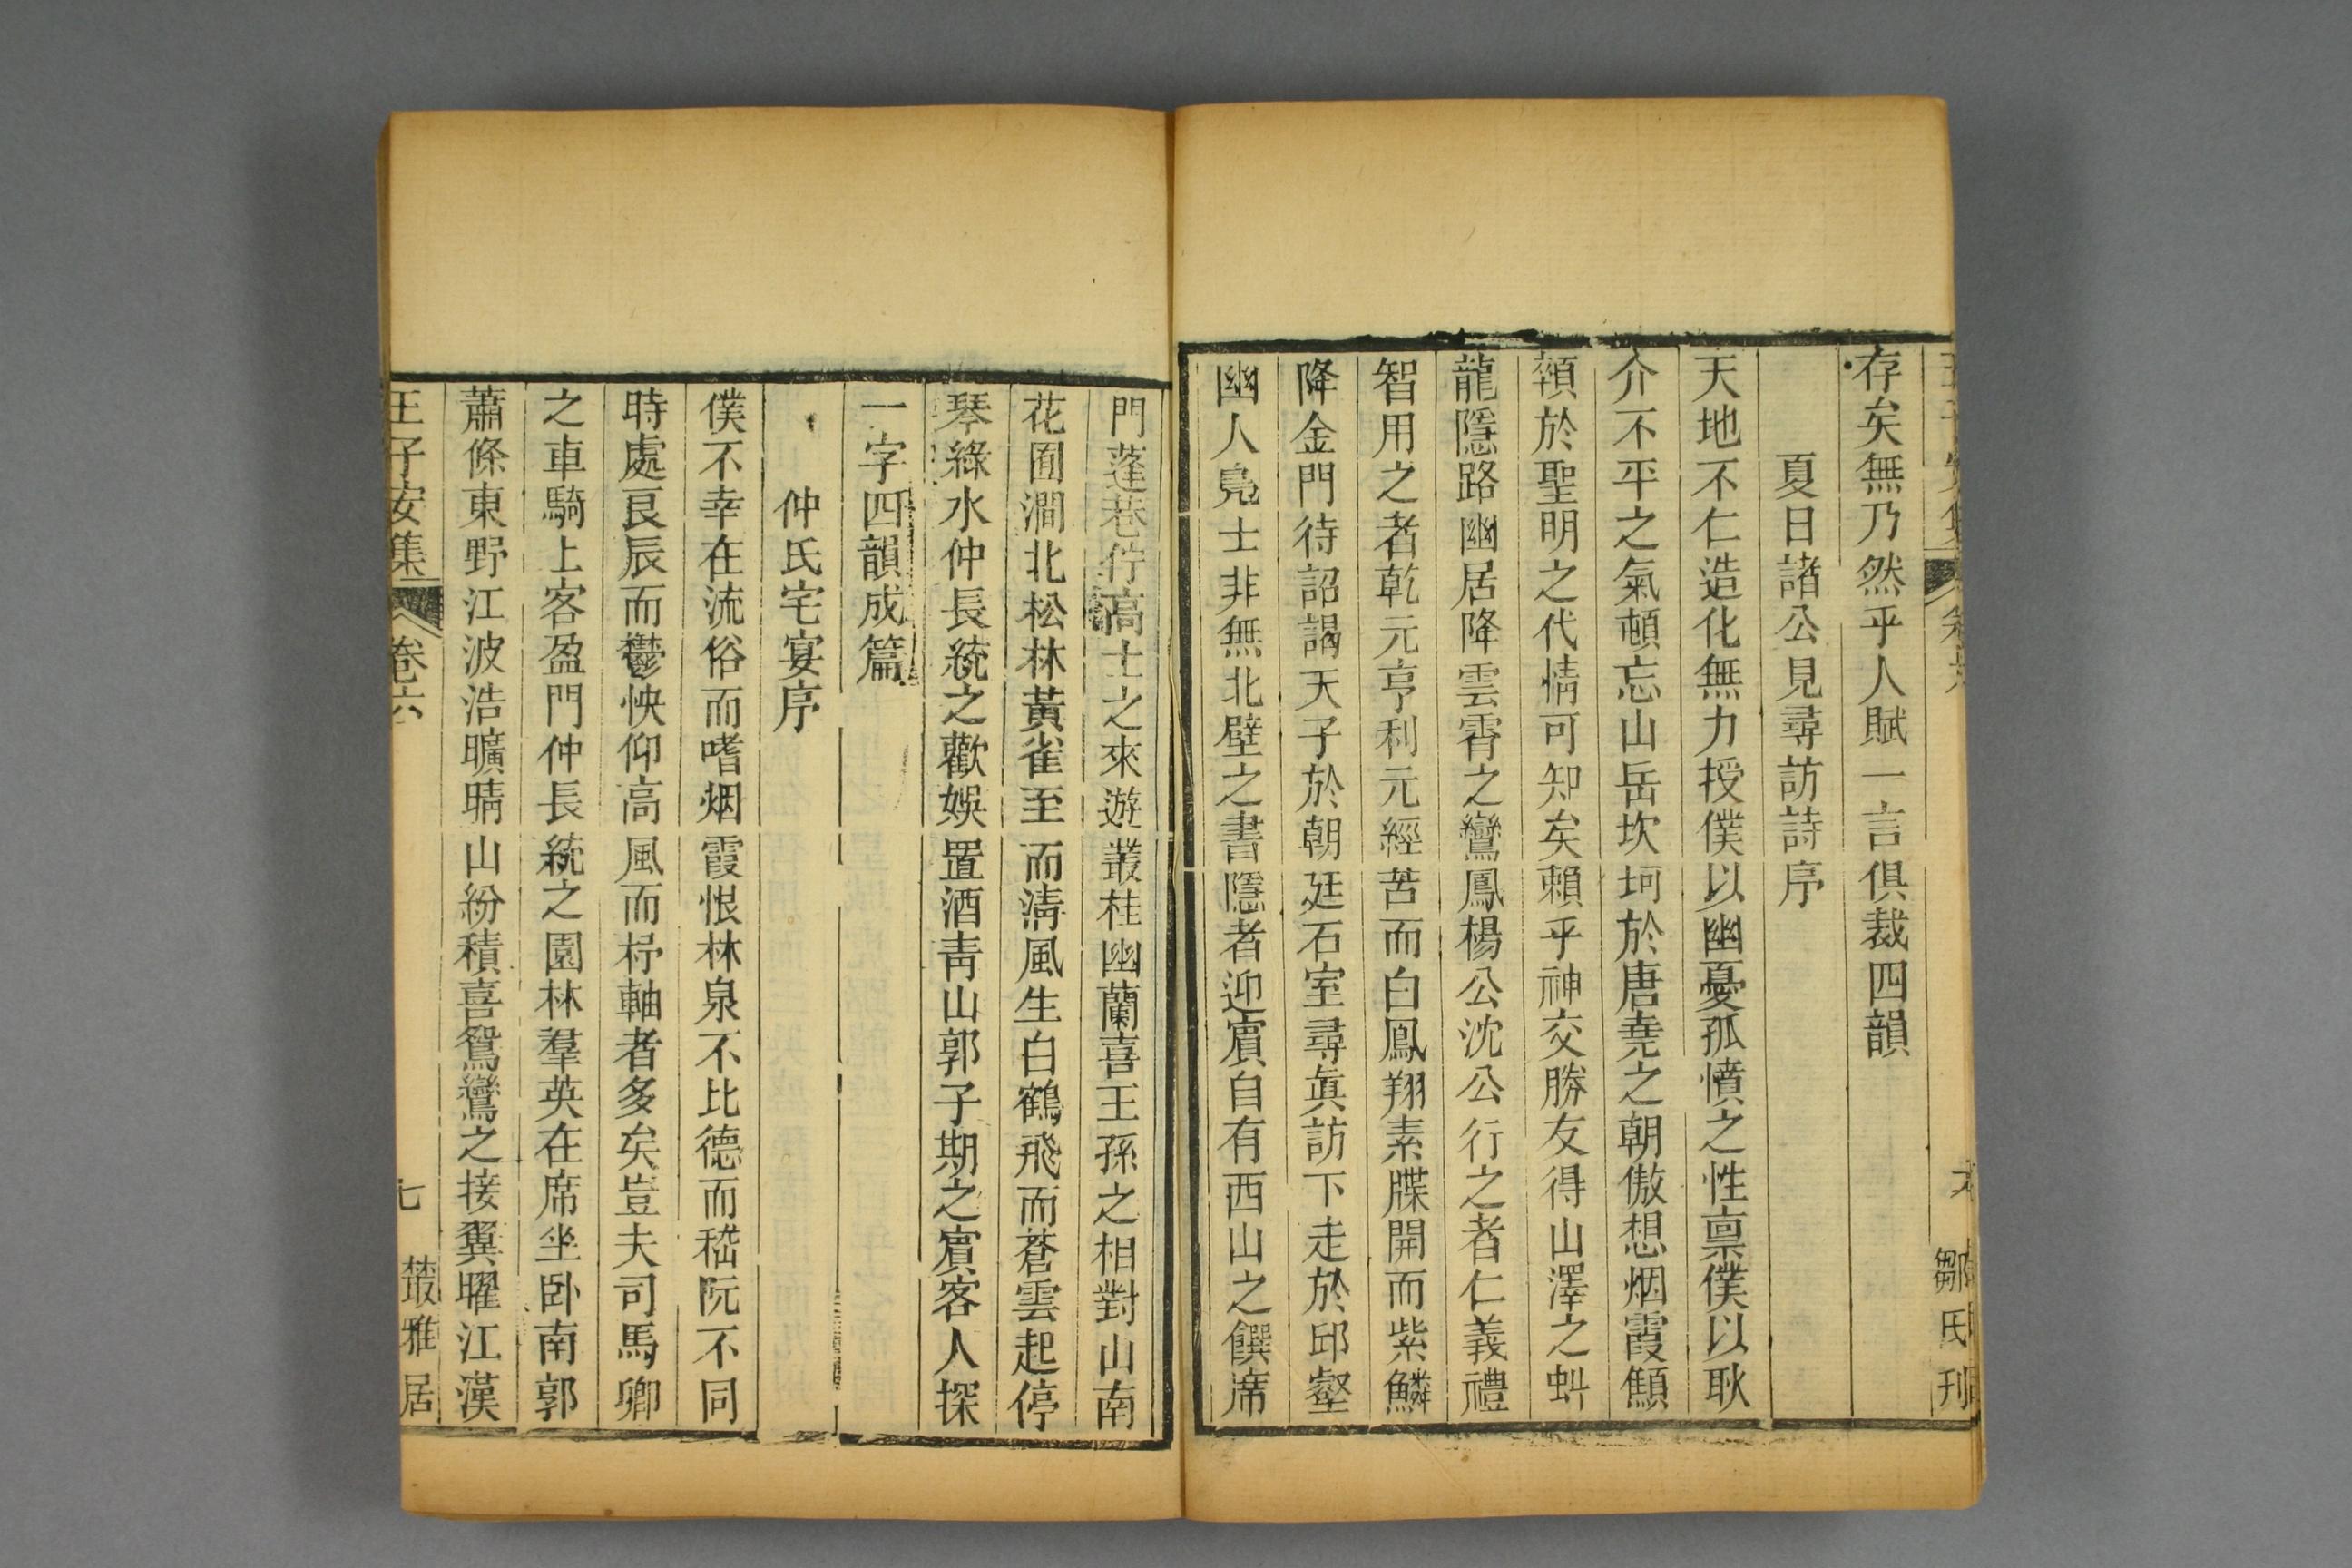 存矣無乃然乎人賦一言俱裁四韻
夏日諸公見尋訪詩序
天地不仁造化無力授僕以幽憂孤憤之性禀僕以耿
介不平之氣頓忘山岳坎坷於唐堯之朝傲想烟霞顦
顇於聖明之代情可知矣賴乎神交勝友得山澤之虯
龍隱路幽居降雲霄之鸞鳳楊公沈公行之者仁義禮
智用之者乾元亨利元經苦而白鳳翔素牒開而紫鱗
降金門待詔謁天子於朝廷石室尋眞訪下走於邱壑
幽人鳧士非無北壁之書隱者迎賔自有西山之饌席
門蓬巷佇高士之來遊叢桂幽蘭喜王孫之相對山南
花圃澗北松林黃雀至而淸風生白鶴飛而蒼雲起停
琴綠水仲長統之歡娛置酒靑山郭子期之賔客人探
一字四韻成篇
仲氏宅宴序
僕不幸在流俗而嗜烟霞恨林泉不比德而嵇阮不同
時處良辰而鬱怏仰高風而杼軸者多矣豈夫司馬卿
之車騎上客盈門仲長統之園林羣英在席坐卧南郭
蕭條東野江波浩曠晴山紛積喜鴛鸞之接翼曜江漢
王子安集 卷六 七 叢雅居
鄒氏刊